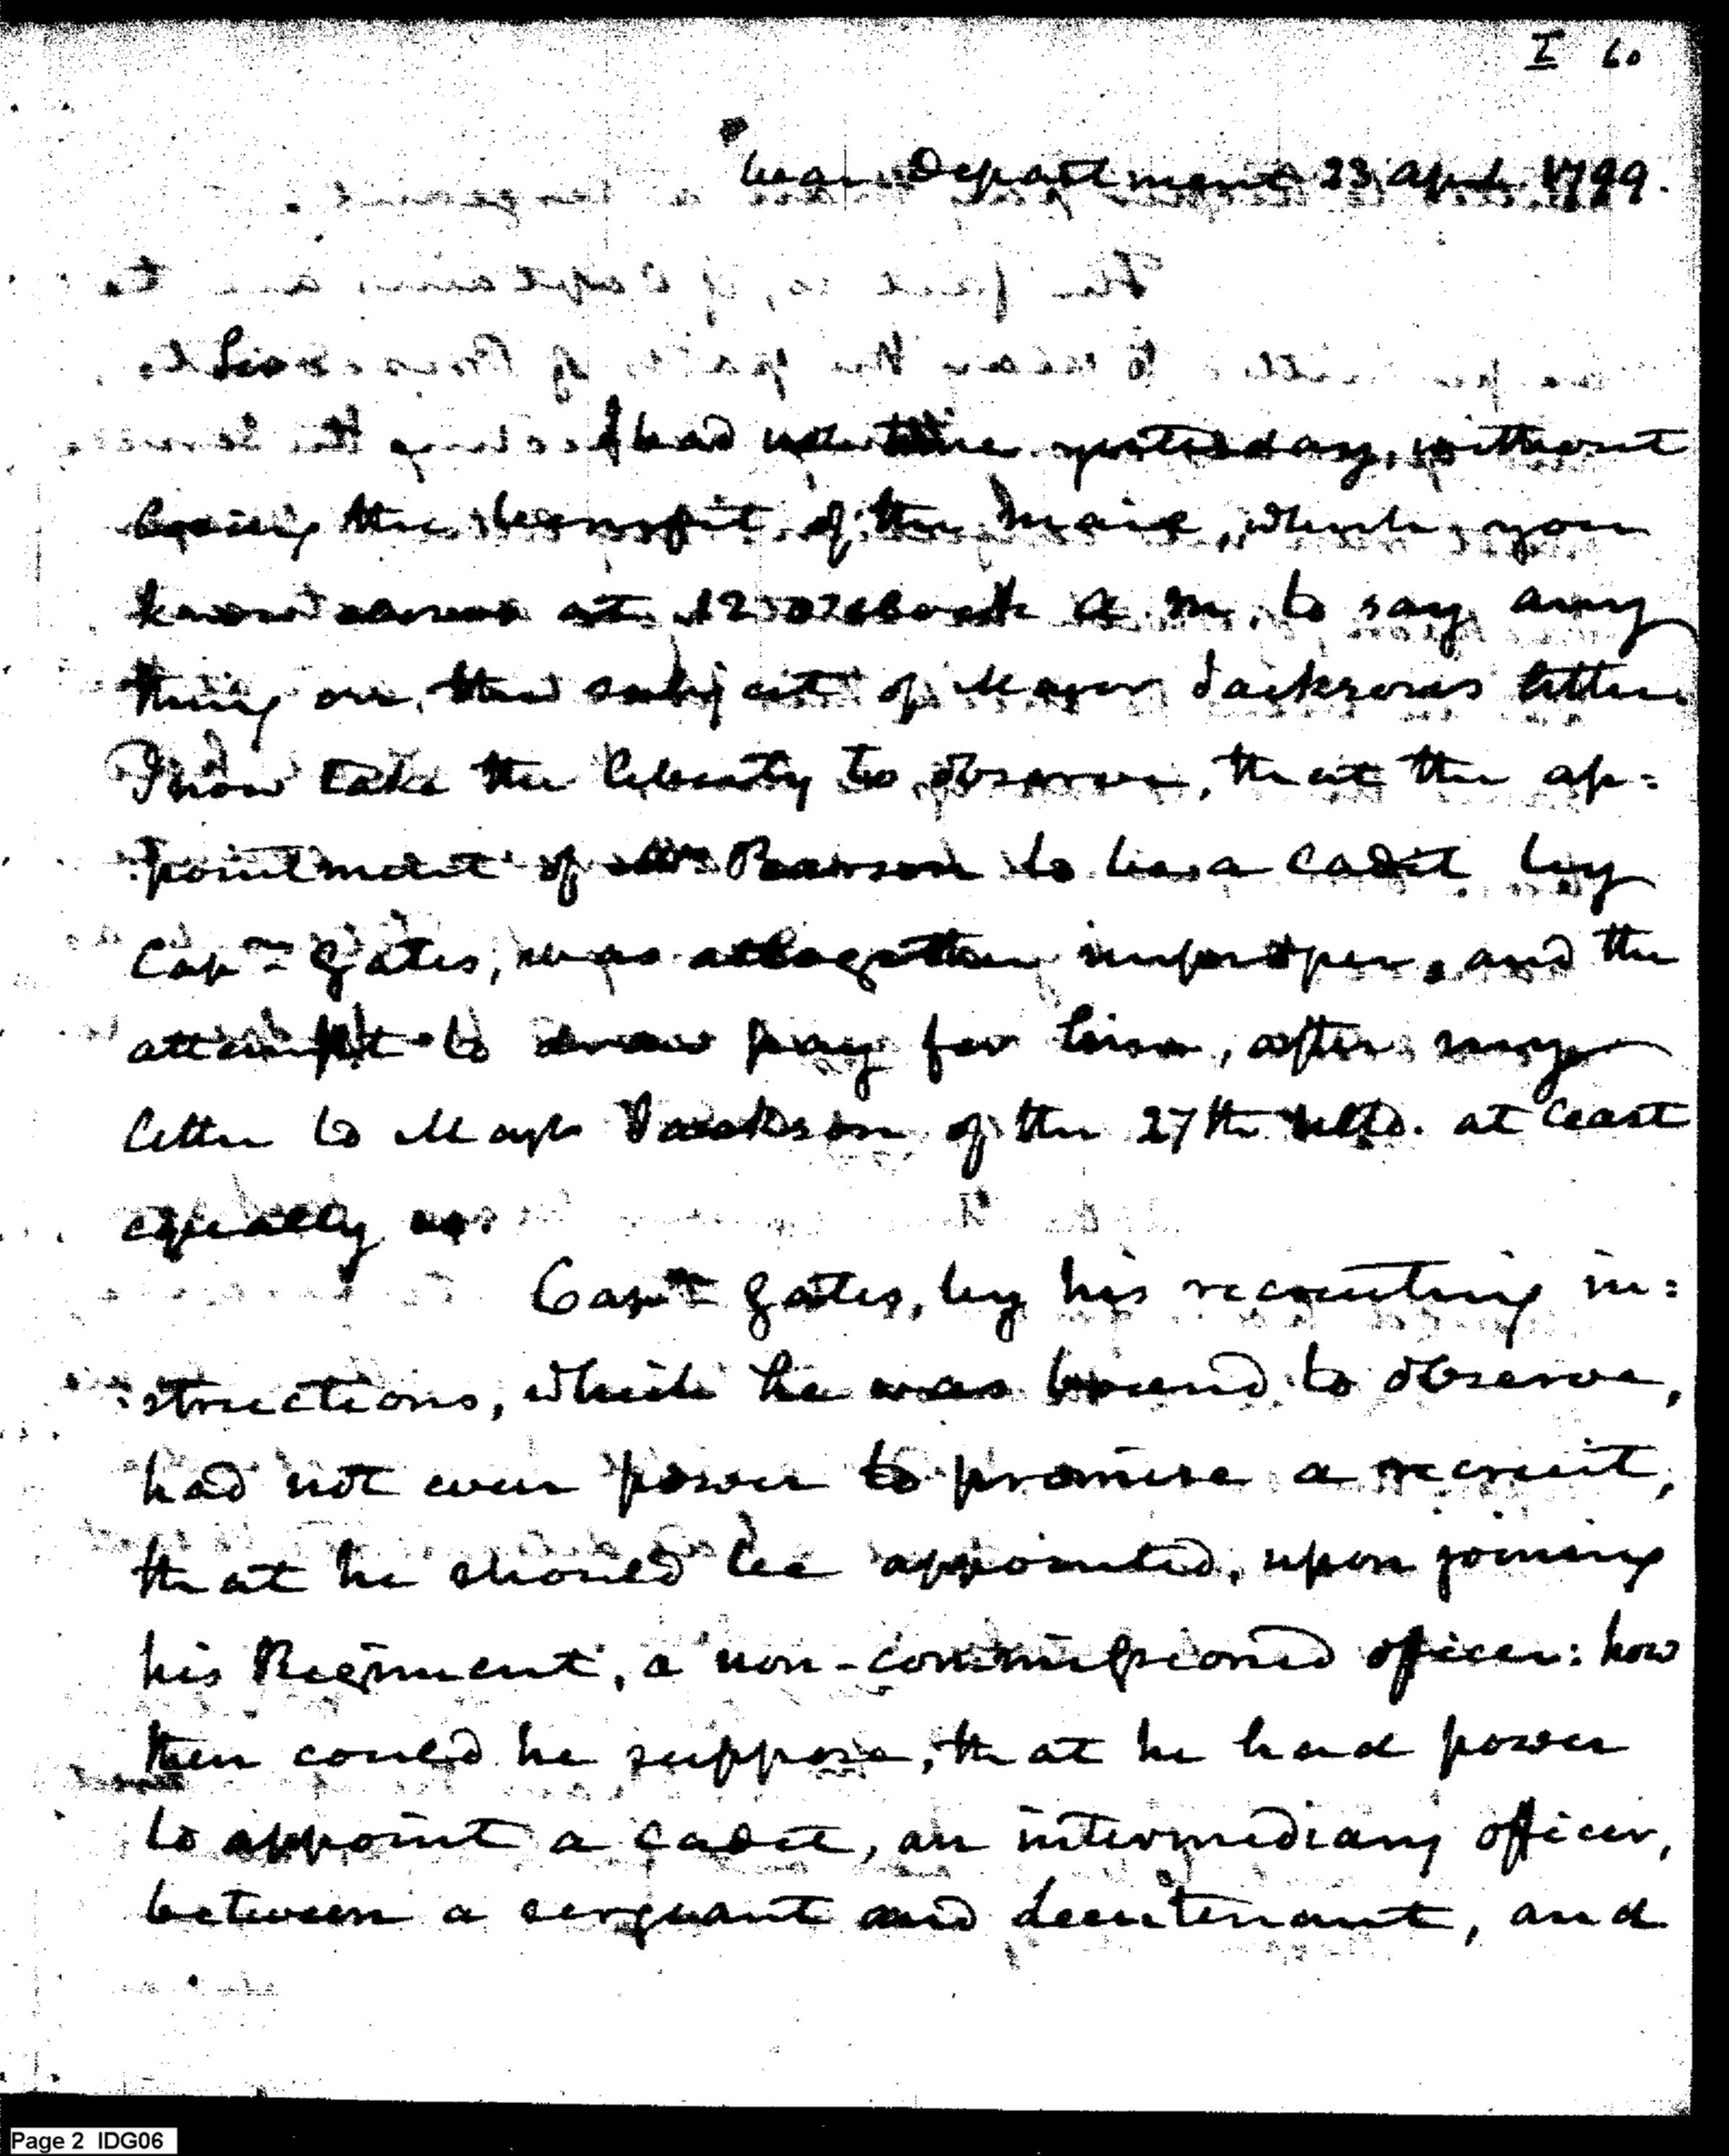 I 60
War Department 23 April 1799.
Sir
I had not time yesterday, without
losing the benefit of the mail, which you
know closes at 12 o'clock A. M. to say any
thing on the subject of Major Jackson's letter.
I now take the liberty to observe, that the ap=
=pointment of Mr Pearson to be a cadet by
Capn Gates, was altogether improper, and the
attempt to draw pay for him, after my
letter to Major Jackson of the 27th ulto. at least
equally so.
Capn Gates, by his recruiting in=
=structions, which he was bound to observe,
had not even power to promise a recruit,
that he should be appointed, upon joining
his Regiment, a non-commissioned officer: how
then could he suppose, that he had power
to appoint a cadet, an intermediary officer,
between a serjeant and lieutenant, and
Page 2 IDG06